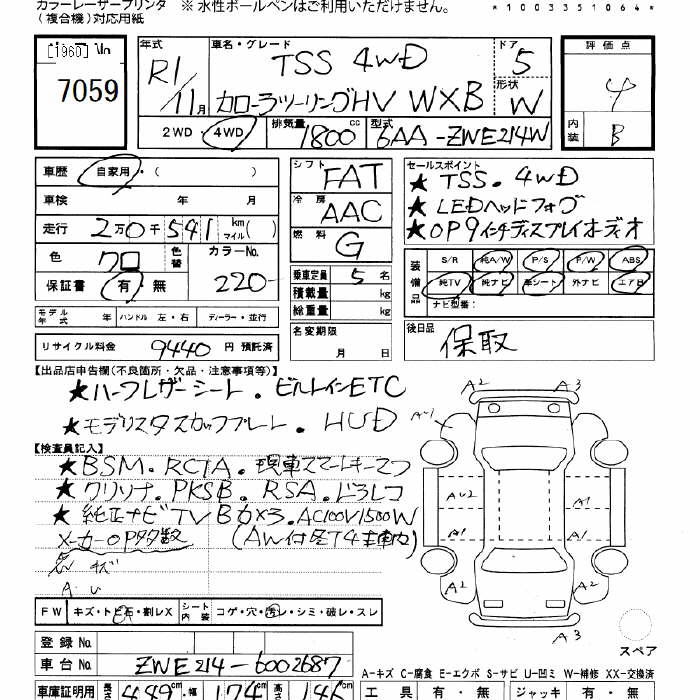 カラーレーザープリンタ ※ 水性ボールペンはご利用いただけません。 *1003351064*
(複合機)対応用紙
[1960] No
7059
年式 R1/11月
車名・グレード TSS 4WD
カローラツーリングHV WXB
ドア 5
形状 W
評価点 4
内装 B
2WD・4WD 排気量 1800 cc 型式 6AA-ZWE214W
車歴 自家用・( )
車検 年 月
走行 2万0千541 km マイル( )
色 クロ 色替 カラーNo. 220
保証書 有・無
シフト FAT
冷房 AAC
燃料 G
乗車定員 5 名
積載量 kg
総重量 kg
名変期限 月 日
セールスポイント
★ TSS. 4WD
★ LEDヘッドフォグ
★ OP9インチディスプレイオーディオ
装備品 S/R 純A/W P/S P/W ABS
純TV 純ナビ 革シート 外ナビ エアB
ナビ型番( )
モデル年式 年 ハンドル 左・右 ディーラー・並行
リサイクル料金 9440 円 預託済
後日品 保取
【出品店申告欄(不良箇所・欠品・注意事項等)】
★ハーフレザーシート. ビルトインETC
★モデリスタスカッフプレート. HUD
【検査員記入】
★BSM. RCTA. 現車スマートキー2つ
★クリソナ. PKSB. RSA. ドラレコ
★純正ナビTVBカメラ. AC100V1500W
メーカーOP多数 (AW付冬T4車内)
キズ
A. U
A2 A3
A-1
AU2 A1
A1 A1
A2 A2
A3
スペア
FW キズ・トビ石・割レX シート内装 コゲ・穴・汚レ・シミ・破レ・スレ
登録No.
車台No. ZWE214-6002687
A-キズ C-腐食 E-エクボ S-サビ U-凹ミ W-補修 XX-交換済
車庫証明用 長さ 449cm 幅 174cm 高さ 146cm
工具 有・無 ジャッキ 有・無